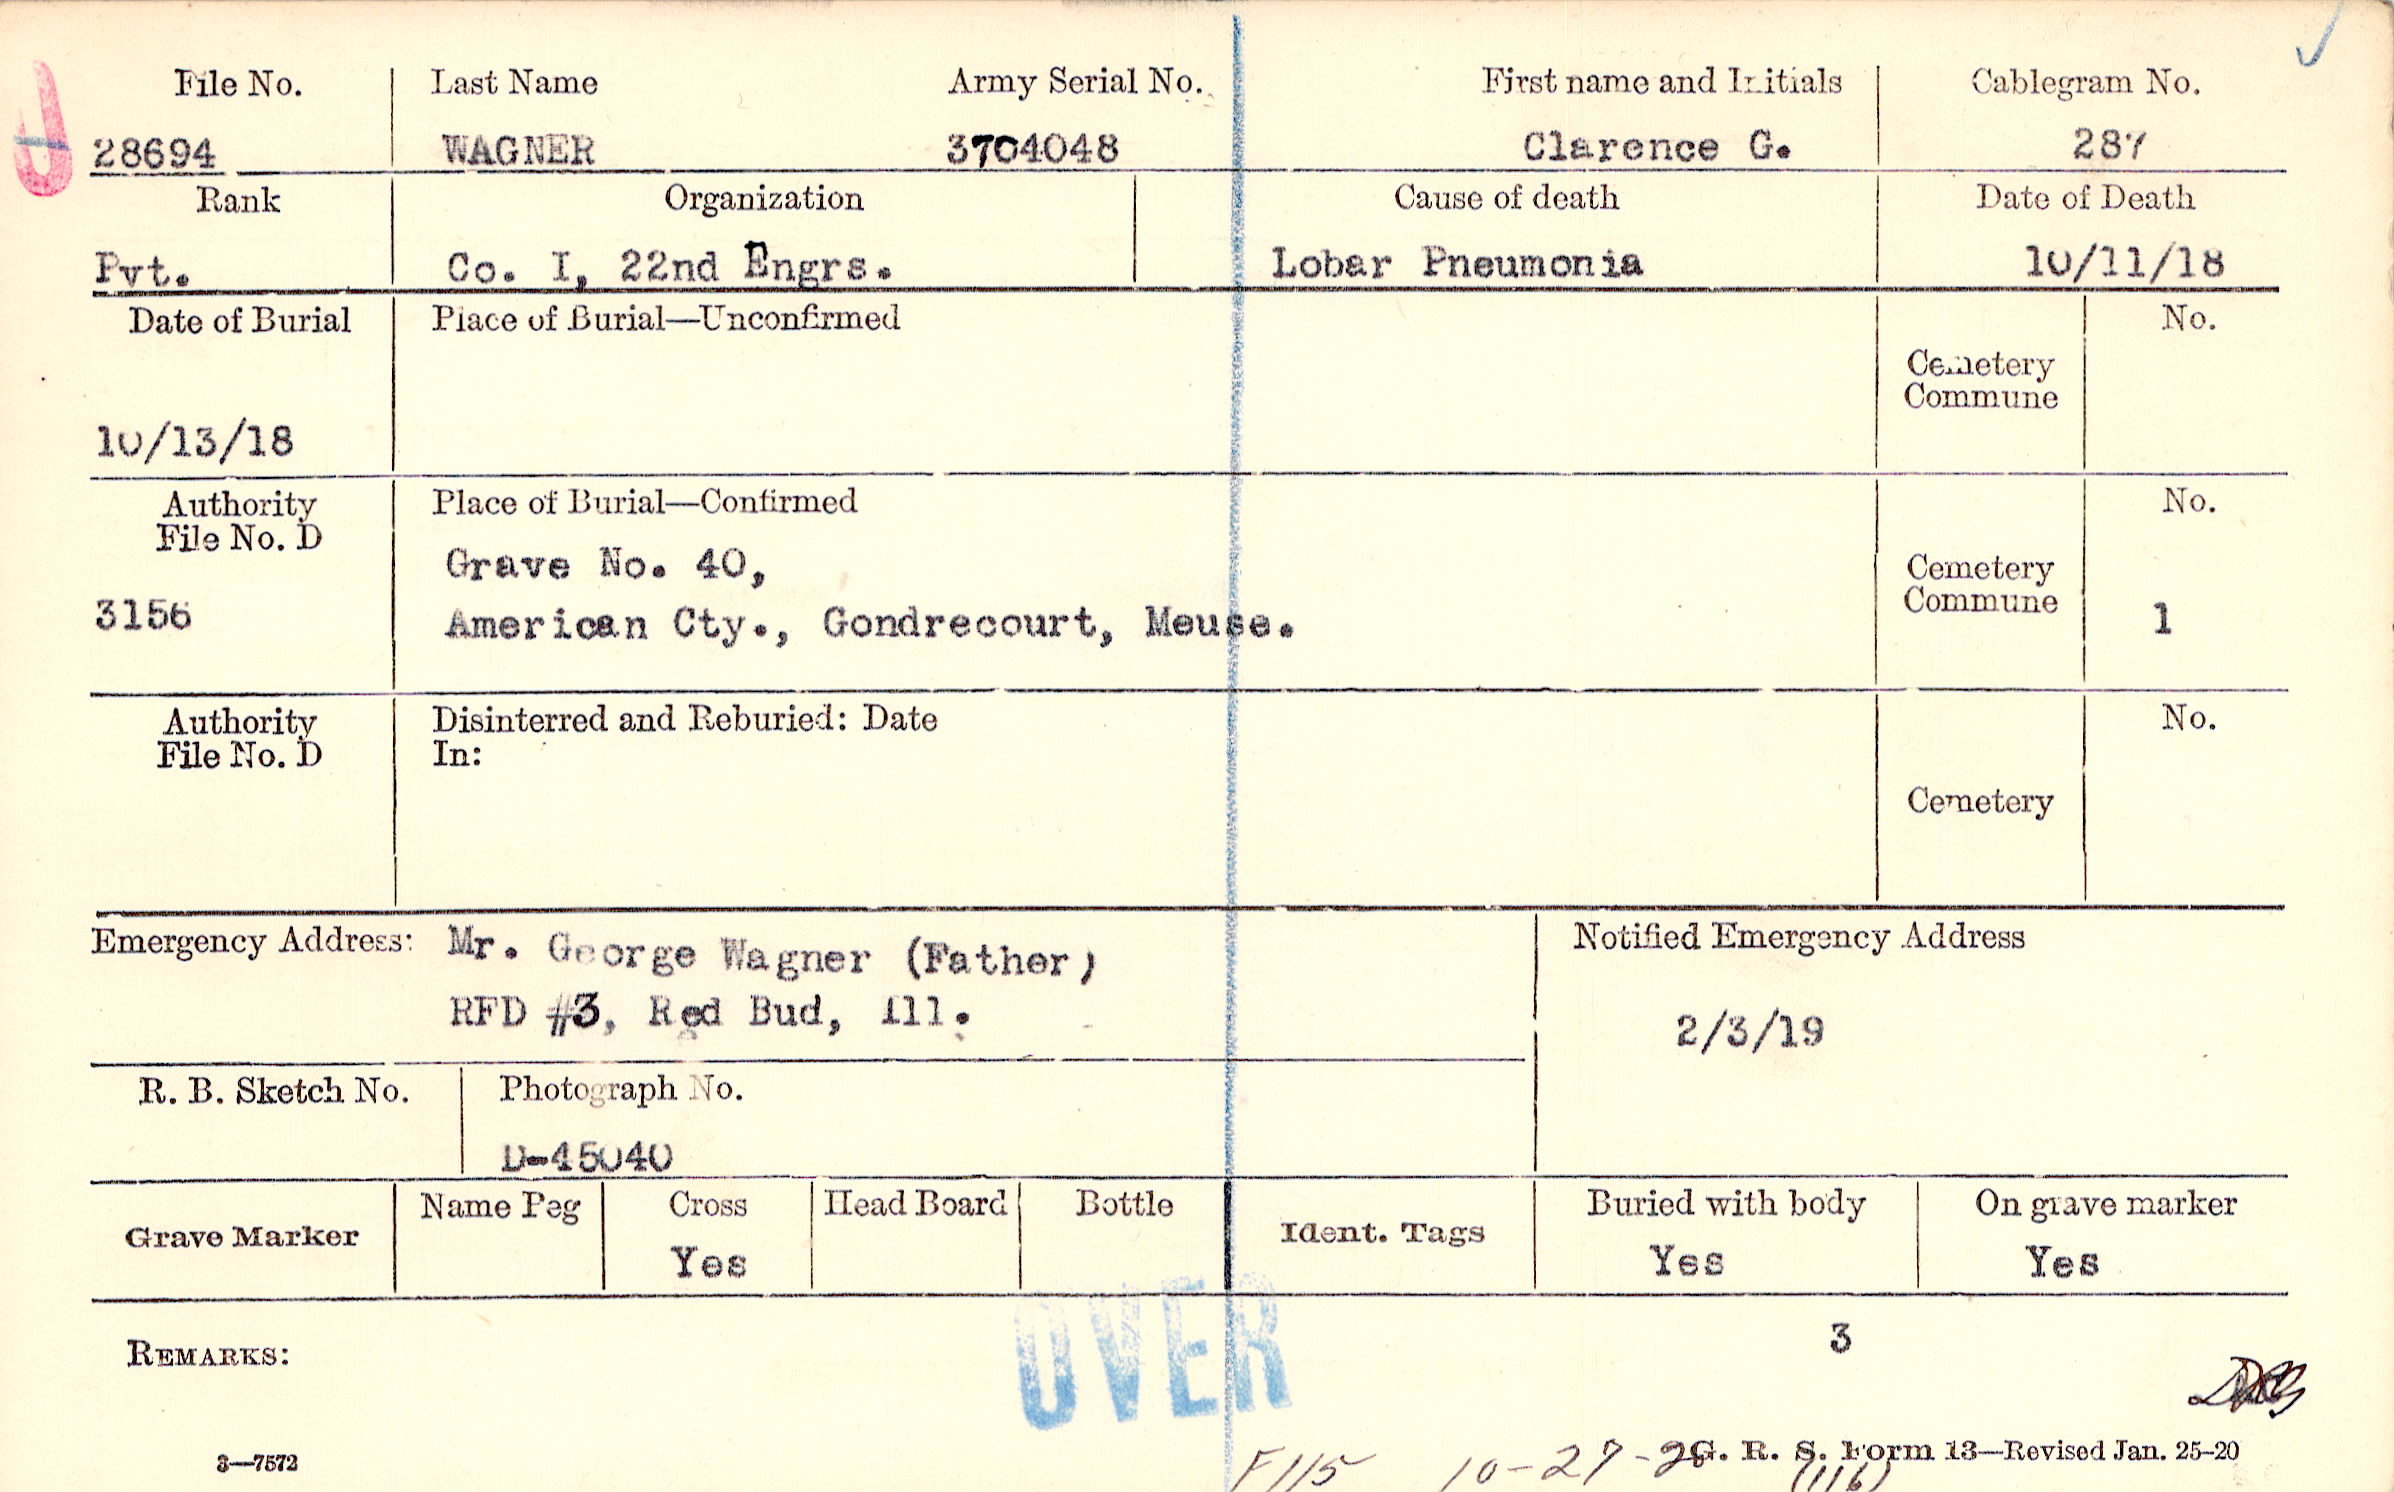 File No. Last Name Army Serial No. First name and Initials Cablegram No.
28694 WAGNER 3704048 Clarence G. 287
Rank Organization Cause of death Date of Death
Pvt. Co. I, 22nd Engrs. Lobar Pneumonia 10/11/18
Date of Burial Place of Burial—Unconfirmed No.
Cemetery
Commune
10/13/18
Authority Place of Burial—Confirmed No.
File No. D
Grave No. 40,
Cemetery
Commune
3156 American Cty., Gondrecourt, Meuse. 1
Authority Disinterred and Reburied: Date No.
File No. D In:
Cemetery
Emergency Address: Mr. George Wagner (Father) Notified Emergency Address
RFD #3, Red Bud, Ill. 2/3/19
R. B. Sketch No. Photograph No.
D-45040
Grave Marker Name Peg Cross Head Board Bottle Ident. Tags Buried with body On grave marker
Yes Yes Yes
OVER
3
REMARKS:
3—7572 F115 10-27-2 G. R. S. Form 13—Revised Jan. 25-20
(116)